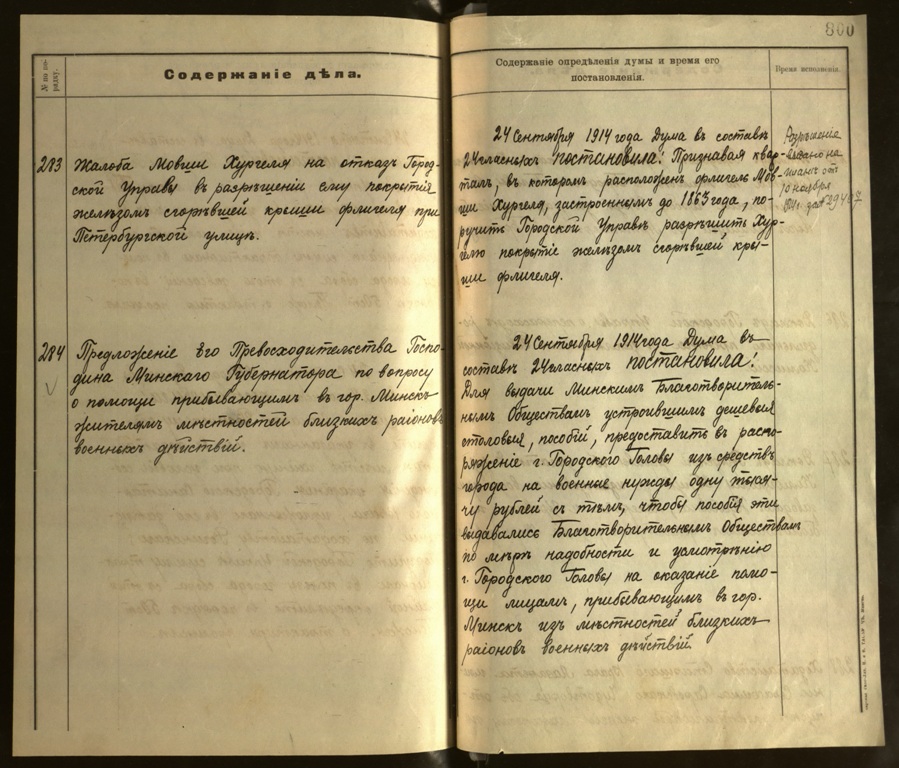 № по по-
рядку.
Содержаніе дѣла.
283 Жалоба Мовши Хургеля на отказъ Город-
ской Управы въ разрѣшеніи ему покрытія
желѣзомъ сгорѣвшей крыши флигеля при
Петербургской улицѣ.
284 Предложеніе Его Превосходительства Госпо-
дина Минскаго Губернатора по вопросу
о помощи прибывающимъ въ гор. Минскъ
жителямъ мѣстностей близкихъ раіоновъ
военныхъ дѣйствій.
800
Содержаніе опредѣленія думы и время его
постановленія.
Время исполненія.
24 Сентября 1914 года Дума въ составѣ
24 гласныхъ постановила: Признавая квар-
талъ, въ которомъ расположенъ флигель Мов-
ши Хургеля, застроеннымъ до 1863 года, по-
ручить Городской Управѣ разрѣшить Хур-
гелю покрытіе желѣзомъ сгорѣвшей кры-
ши флигеля.
Разрѣшеніе
на
планѣ от
10 ноября
24 Сентября 1914 года Дума въ
составѣ 24 гласныхъ постановила:
Для выдачи Минскимъ Благотворитель-
нымъ Обществамъ устроившимъ дешевыя
столовыя, пособій, предоставить въ распо-
ряженіе г. Городского Головы изъ средствъ
города на военные нужды одну тыся-
чу рублей съ тѣмъ, чтобы пособія эти
выдавались Благотворительнымъ Обществамъ
по мѣрѣ надобности и усмотрѣнію
г. Городского Головы на оказаніе помо-
щи лицамъ, прибывающимъ въ гор.
Минскъ изъ мѣстностей близкихъ
раіоновъ военныхъ дѣйствій.